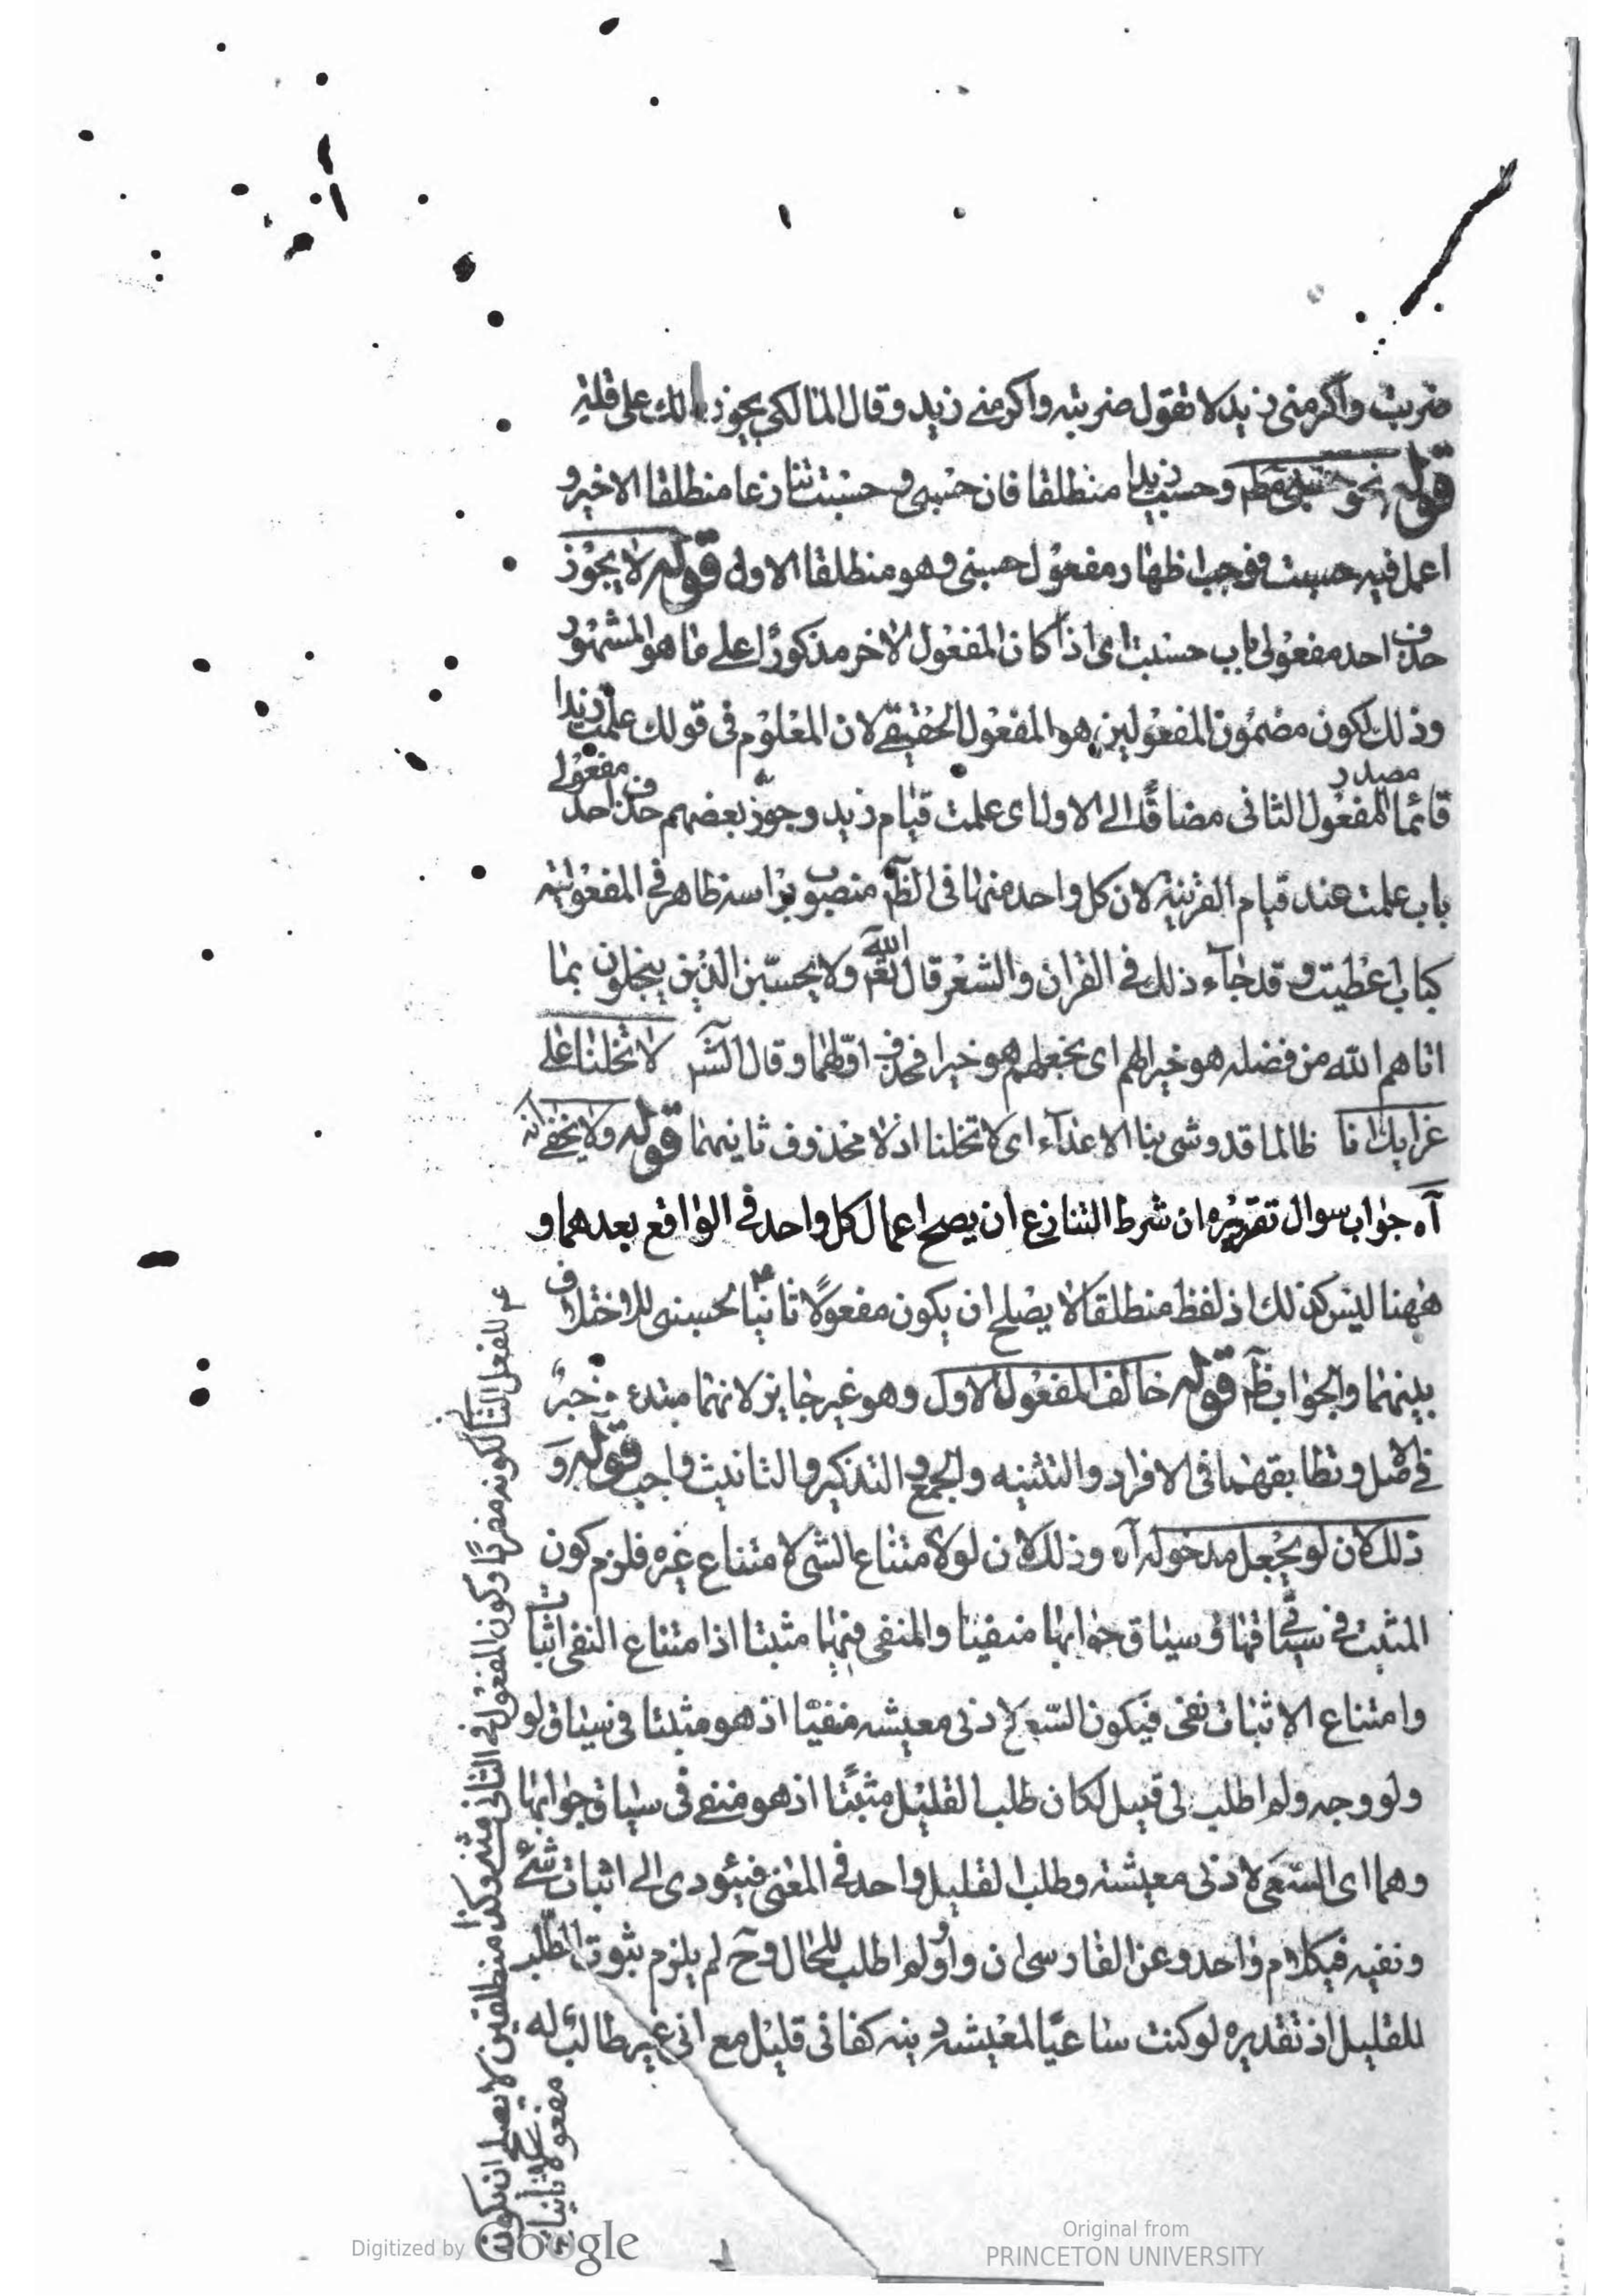 ضربت واكرمنى زيد لا تقول ضربته واكرمنى زيد وقال المالكي يجوز ذلك على قلة
قوله نحو حسبنى وحسبت زيدا منطلقا فان حسبنى وحسبت تنازعا منطلقا الاخير و
اعمل فيه حسبت فوجب اظهار مفعول حسبنى وهو منطلقا الاول قوله لا يجوز
حذف احد مفعولى باب حسبت اى اذا كان المفعول الاخر مذكورًا على ما هو المشهور
وذلك لكون مضمون المفعولين هو المفعول الحقيقے لان المعلوم فى قولك علمت زيدا
قائما مصدر المفعول الثانى مضافًا الى الاول اى علمت قيام زيد وجوّز بعضهم حذف احد مفعولے
باب علمت عند قيام القرينة لان كل واحد منهما فى الظ منصوب براسه ظاهر فے المفعولية
كباب اعطيت وقد جاء ذلك فے القران والشعر قال الله تع ولا يحسبن الذين يبخلون بما
اتاهم الله من فضله هو خيرا لهم اى بخلهم هو خيرا فحذف اولهما وقال الش لا تخلنا على
غرايك انا ظالما قد وشى بنا الاعداء اى لا تخلنا اذلاء محذوف ثانيهما قوله ولا يخفے انه
آه جواب سوال تقريره ان شرط التنازع ان يصح اعمال كل واحد فے الواقع بعدهما و
ههنا ليس كذلك اذ لفظ منطلقا لا يصلح ان يكون مفعولًا ثانيا لحسبنى للاختلاف
بينهما والجواب ظ قوله خالف المفعول الاول وهو غير جايز لانهما مبتدء وخبر
فے الاصل وتطابقهما فى الافراد والتثنيه والجمع والتذكير والتانيث واجب قوله و
ذلك لان لو يجعل مدخوله آه وذلك لان لو لامتناع الشى لامتناع غيره فلزم كون
المثبت فے سياقها وفے سياق جوابها منفيا والمنفى فيهما مثبتا اذ امتناع النفى اثبات
وامتناع الاثبات نفى فيكون السعى لادنى معيشه منفيّا اذ هو مثبتا فى سياق لو
ولو وجه ولم اطلب لى قبيل لكان طلب القليل مثبتًا اذ هو منفے فى سياق جوابها
وهما اى السعى لادنى معيشة وطلب القليل واحد فے المعنى فيئودى الى اثبات شئ
ونفيه فے كلام واحد وعن الفارسى ان واو ولم اطلب للحال وح لم يلزم ثبوت الطلب
للقليل اذ تقديره لو كنت ساعيًا لمعيشه دنيه كفانى قليل مع انى غير طالب له
للفعل الثانى لكونه مفردًا وكون المفعول فے الثانى مثنى وكذا منطلقين لا يصلح ان يكون
مفعولا ثانيا
Digitized by Google
Original from
PRINCETON UNIVERSITY